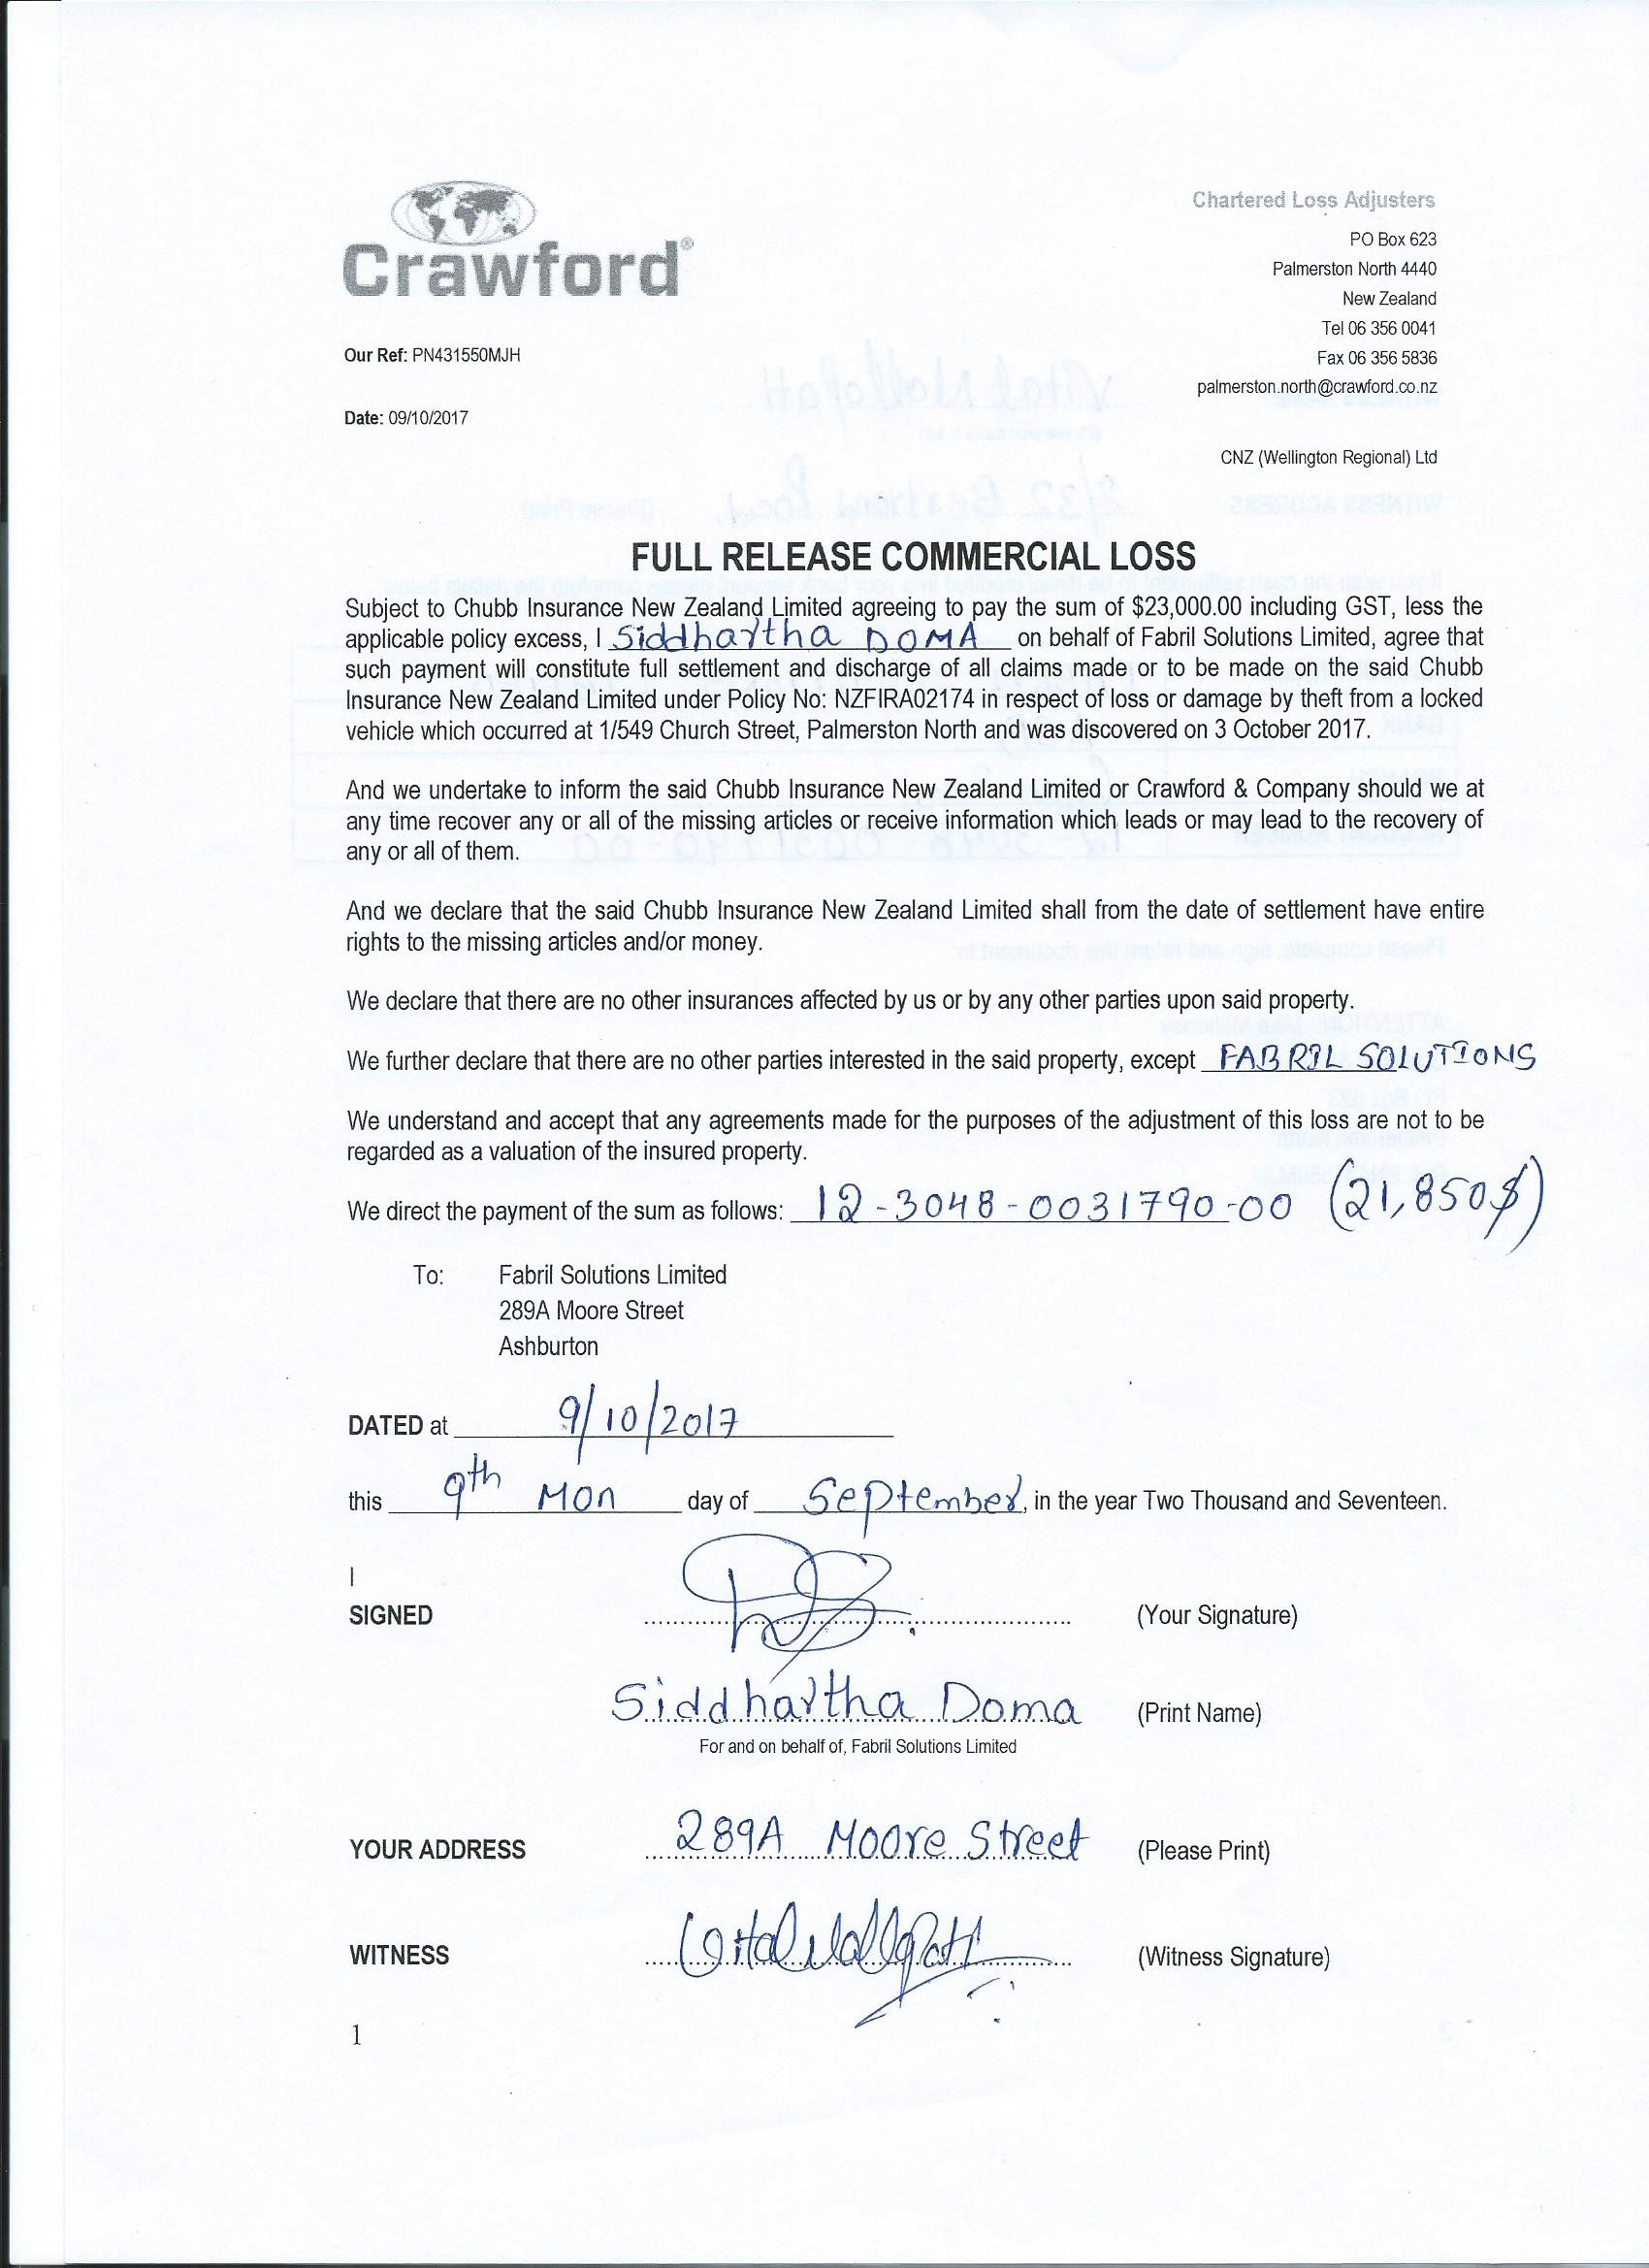 Crawford®
Chartered Loss Adjusters
PO Box 623
Palmerston North 4440
New Zealand
Tel 06 356 0041
Fax 06 356 5836
palmerston.north@crawford.co.nz
Our Ref: PN431550MJH
Date: 09/10/2017
CNZ (Wellington Regional) Ltd
FULL RELEASE COMMERCIAL LOSS
Subject to Chubb Insurance New Zealand Limited agreeing to pay the sum of $23,000.00 including GST, less the
applicable policy excess, I Siddhartha DOMA on behalf of Fabril Solutions Limited, agree that
such payment will constitute full settlement and discharge of all claims made or to be made on the said Chubb
Insurance New Zealand Limited under Policy No: NZFIRA02174 in respect of loss or damage by theft from a locked
vehicle which occurred at 1/549 Church Street, Palmerston North and was discovered on 3 October 2017.
And we undertake to inform the said Chubb Insurance New Zealand Limited or Crawford & Company should we at
any time recover any or all of the missing articles or receive information which leads or may lead to the recovery of
any or all of them.
And we declare that the said Chubb Insurance New Zealand Limited shall from the date of settlement have entire
rights to the missing articles and/or money.
We declare that there are no other insurances affected by us or by any other parties upon said property.
We further declare that there are no other parties interested in the said property, except FABRIL SOLUTIONS
We understand and accept that any agreements made for the purposes of the adjustment of this loss are not to be
regarded as a valuation of the insured property.
We direct the payment of the sum as follows: 12-3048-0031790-00 (21,850$)
To: Fabril Solutions Limited
289A Moore Street
Ashburton
DATED at 9/10/2017
this 9th Mon day of September, in the year Two Thousand and Seventeen.
I
SIGNED (Your Signature)
Siddhartha Doma (Print Name)
For and on behalf of, Fabril Solutions Limited
YOUR ADDRESS 289A Moore Street (Please Print)
WITNESS (Witness Signature)
1